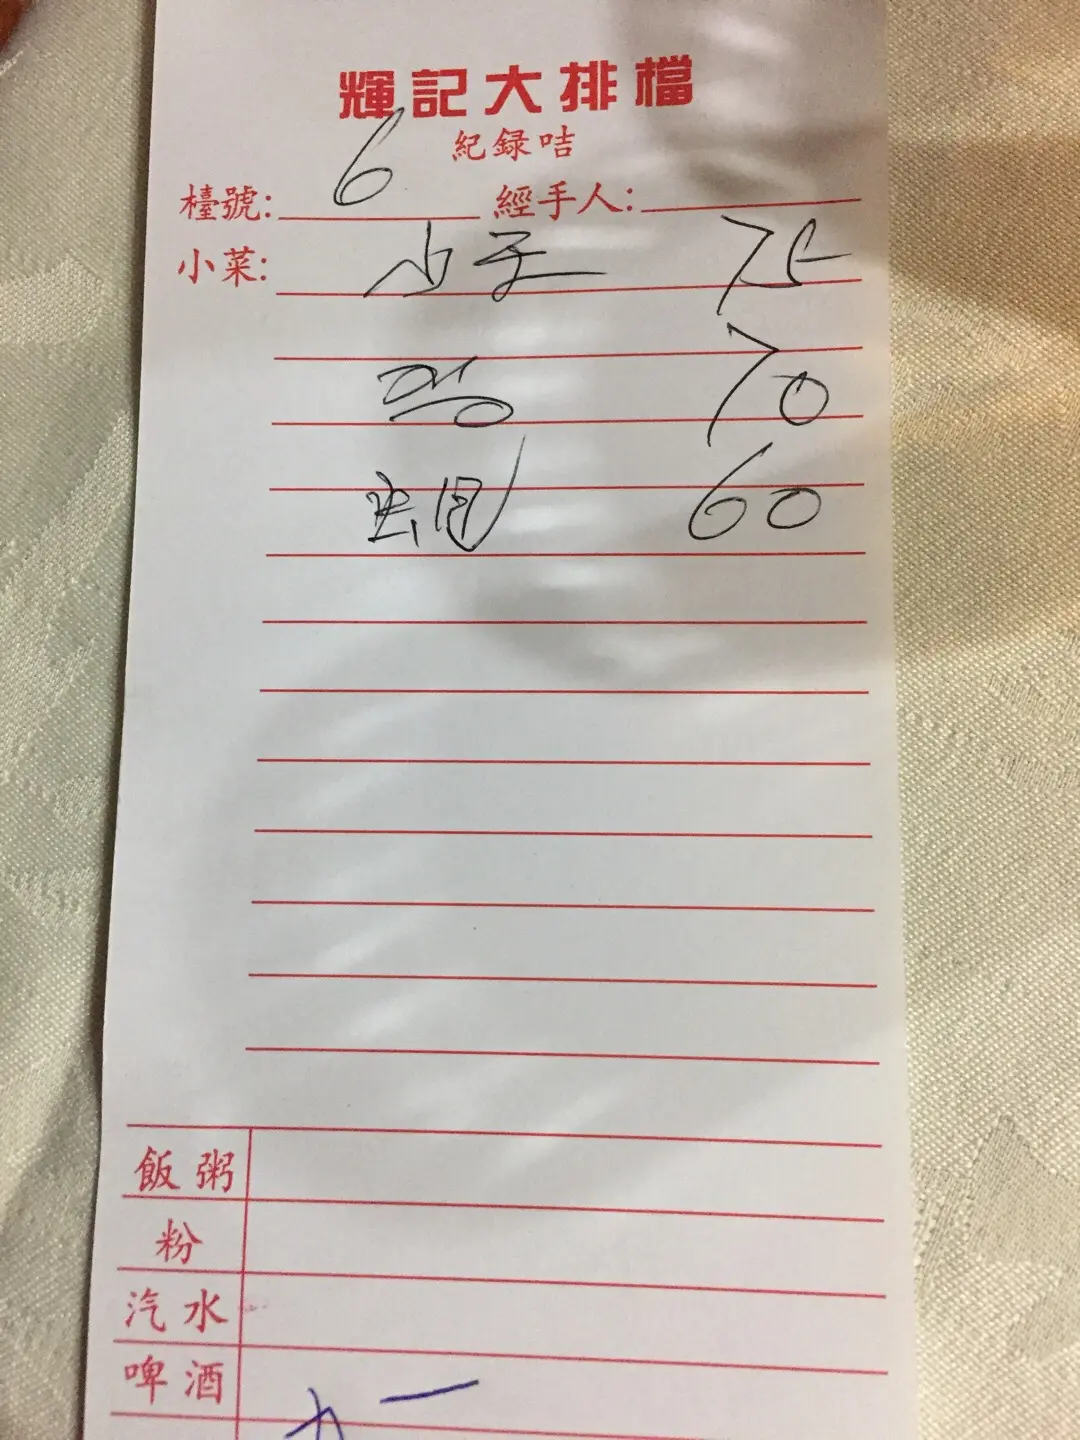 輝記大排檔
紀録咭
檯號: 6 經手人:
小菜: 75
70
60
飯粥
粉
汽水
啤酒